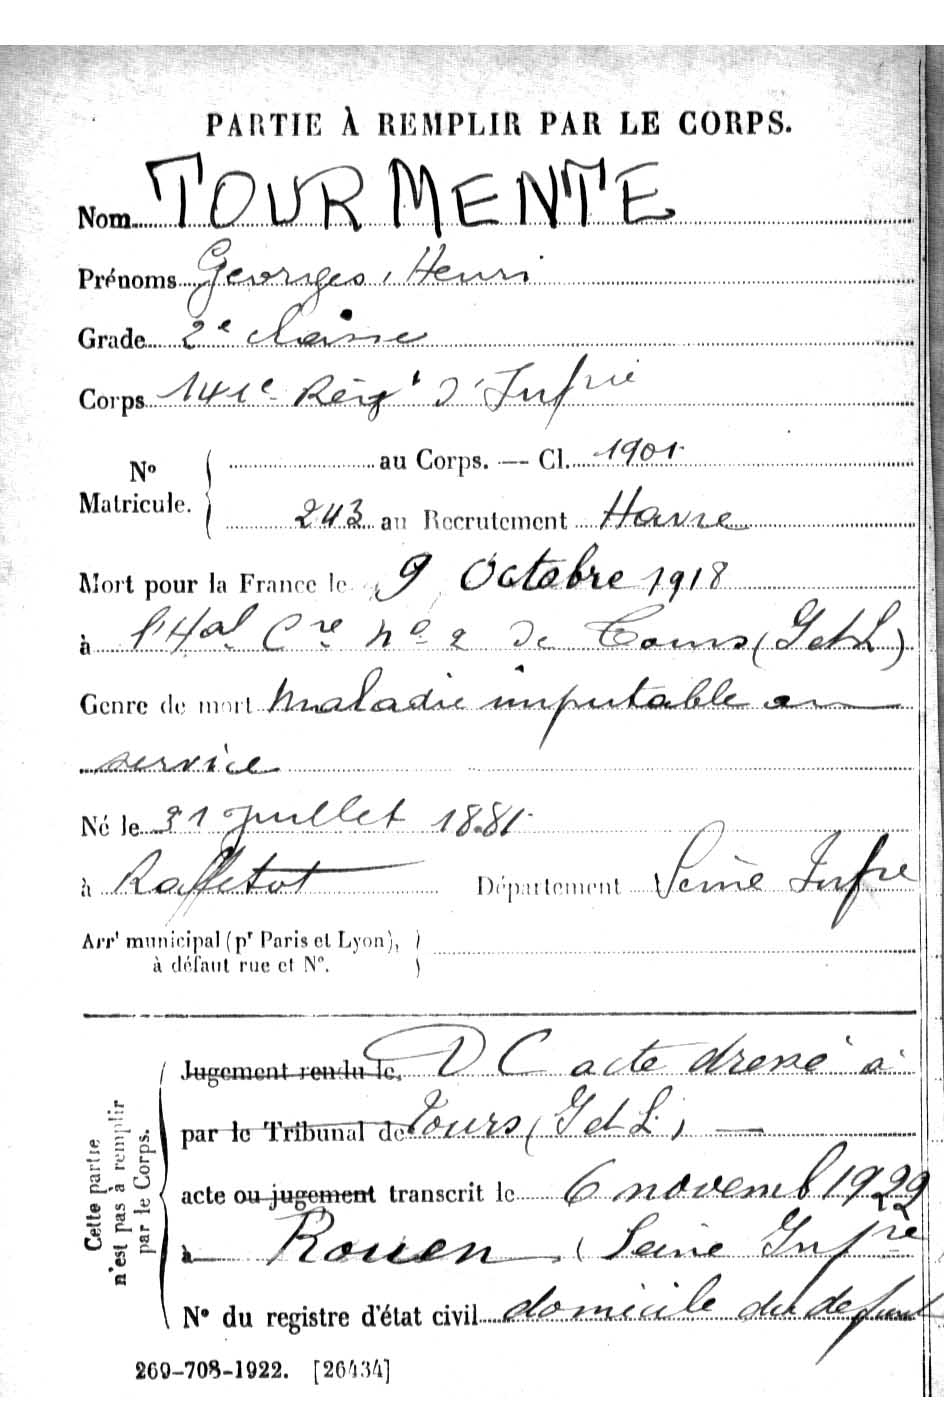 PARTIE À REMPLIR PAR LE CORPS.
Nom TOURMENTE
Prénoms Georges, Henri
Grade 2e classe
Corps 141e Régt d'Infrie
No Matricule. au Corps. — Cl. 1901
243 au Recrutement Havre
Mort pour la France le 9 Octobre 1918
à l'Hal Cre No 2 de Tours (I et L)
Genre de mort Maladie imputable au
service
Né le 31 juillet 1881
à Raffetot Département Seine Infre
Arrt municipal (pr Paris et Lyon),
à défaut rue et No.
Cette partie
n'est pas à remplir
par le Corps.
Jugement rendu le, DC acte dressé à
par le Tribunal de Tours (I et L) —
acte ou jugement transcrit le 6 novemb 1922
à Rouen (Seine Infre
No du registre d'état civil domicile du defunt
269-708-1922. [26434]